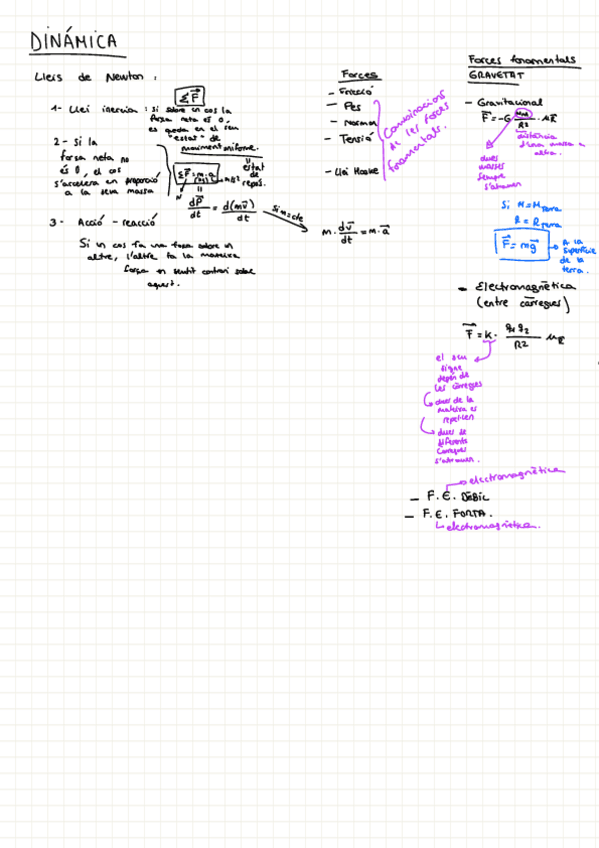 DINÁMICA
Lleis de Newton :
ΣF⃗
1- Llei inercia : si sobre un cos la
força neta és 0,
es queda en el seu
"estat" de
moviment uniforme.
estat
de
repòs.
2- Si la
força neta no
és 0, el cos
s'accelera en proporció
a la seva massa
ΣF⃗ = m·a⃗
N
m/s²
dP⃗/dt = d(mv⃗)/dt
Si m=cte
m · dv⃗/dt = m·a⃗
3- Acció - reacció
Si un cos fa una força sobre un
altre, l'altre fa la mateixa
força en sentit contrari sobre
aquest.
Forces
- Fricció
- Pes
- Normal
- Tensió
- Llei Hooke
Combinacions
de les forces
fonamentals.
Forces fonamentals
GRAVETAT
- Gravitacional
F⃗ = -G Mm/R² · u⃗R
distància
d'una massa a
altra.
dues
masses
sempre
s'atrauen
Si M = MTerra
R = RTerra
F⃗ = mg⃗
A la
superfície
de la
terra.
- Electromagnètica
(entre càrregues)
F⃗ = K · q1 q2/R² uR
el seu
signe
depèn de
les càrregues
dues de la
mateixa es
repel·leixen
dues de
diferents
càrregues
s'atrauen.
electromagnètica
- F. E. DÈBIL
- F. E. FORTA.
electromagnètica.